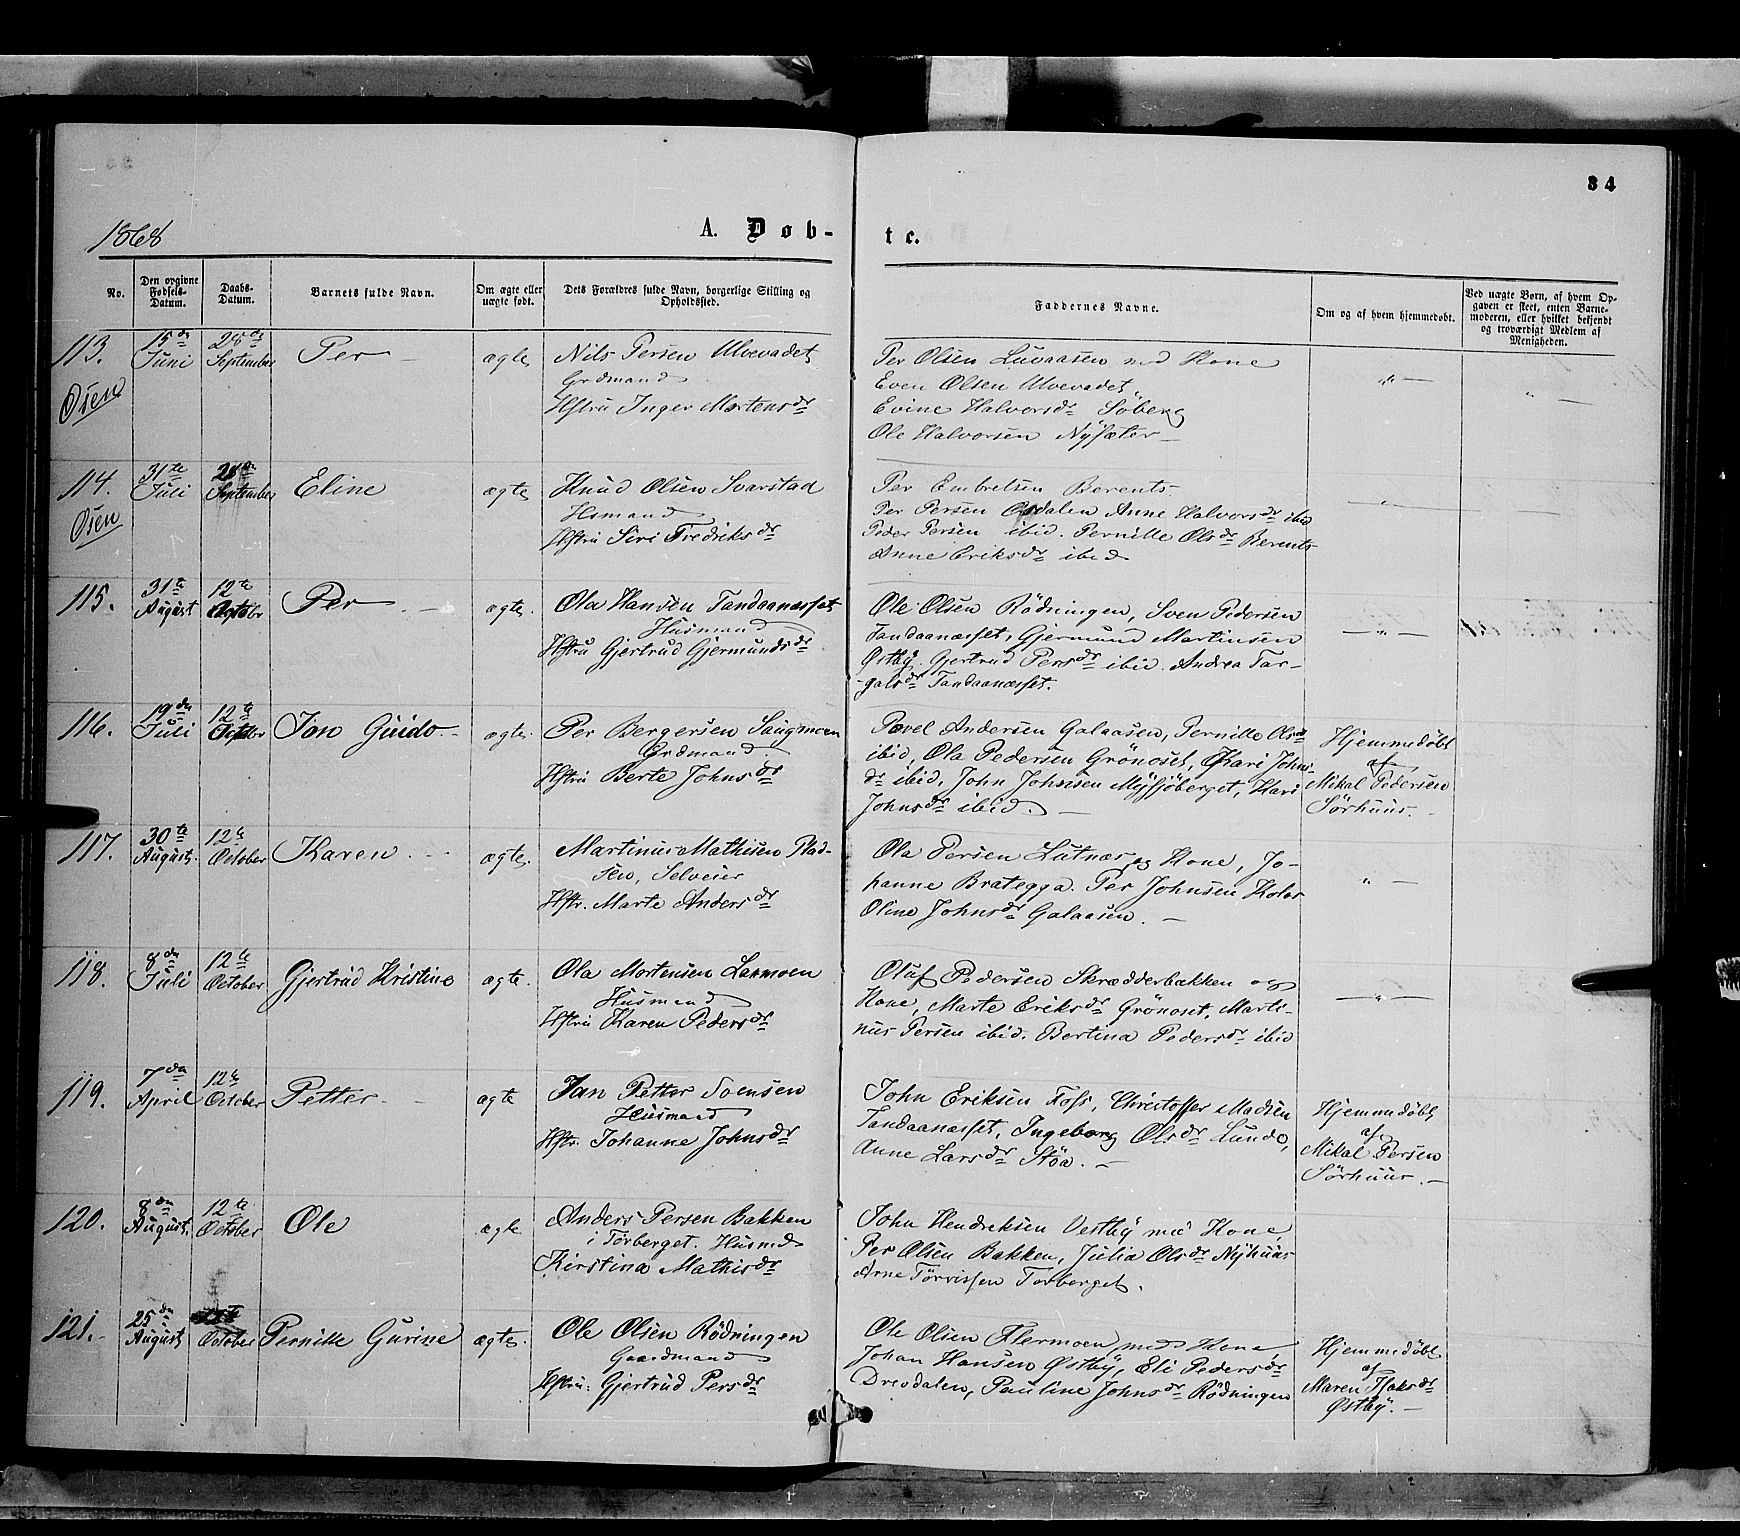 34
1868
A. Døb-
te.
No.
Den opgivne
Fødsels-
Datum.
Daabs-
Datum.
Barnets fulde Navn.
Om ægte eller
uægte født.
Dets Forældres fulde Navn, borgerlige Stilling og
Opholdssted.
Faddernes Navne.
Om og af hvem hjemmedøbt.
Ved uægte Børn, af hvem Op-
gaven er skeet, enten Barne-
moderen, eller hvilket bekjendt
og troværdigt Medlem af
Menigheden.
113.
Osen
15de
Juni
28de
September
Per
ægte
Nils Persen Ulvevadet
Grdmand
Hstru Inger Mortensdr
Per Olsen Luvaasen med Kone
Even Olsen Ulvevadet
Evine Halvorsdr Søberg
Ole Halvorsen Nysæter
114.
Osen
31te
Juli
September
Eline
ægte
Knud Olsen Svarstad
Hsmand
Hstru Siri Fredriksdr
Per Embretsen Berents
Per Persen Osdalen Anne Halvorsdr ibid
Peder Persen ibid. Pernille Olsdr Berents
Anne Eriksdr ibid
115.
31te
August
12te
October
Per
ægte.
Ola Hansen Tandaanæsset
Husmand
Hstru Gjertrud Gjermundsdr
Ole Olsen Rödningen, Sven Pedersen
Tandaanæsset, Gjermund Martinsen
Østby. Gjertrud Persdr ibid. Andrea Tar-
galsdr Tandaanæsset.
116.
19de
Juli
12te
Jon Guido
ægte.
Per Bergersen Saugmoen
Grdmand
Hstru Berte Johnsdr
Pævel Andersen Galaasen, Pernille Olsdr
ibid, Ola Pedersen Grönoset, Kari Johns-
dr ibid. John Johnsen Mysjöberget, Kari
Johnsdr ibid.
Hjemmedøbt
af
Mikal Pedersen
Sörhuus.
117.
30te
August.
12te
October
Karen
ægte.
Martinus Mathisen Plad-
sen, Selveier
Hstr. Marte Andersdr
Ola Persen Lutnæs og Kone, Jo-
hanne Brategga. Per Johnsen Kolos
Oline Johnsdr Galaasen.
118.
8de
Juli
12te
October
Gjertrud Kristine
ægte.
Ola Mortensen Larmoen
Husmand
Hstru Karen Pedersdr
Oluf Pedersen Skrædderbakken og
Kone, Marte Eriksdr Grönoset, Marti-
nus Persen ibid. Bertina Pedersdr ibid
119.
7de
April
12te
October
Petter
ægte
Jan Petter Svensen
Husmand
Hstr. Johanne Johnsdr
John Eriksen Foss, Christoffer Madsen
Tandaanæsset, Ingeborg Olsdr Lunde,
Anne Larsdr Støa.
Hjemmedøbt
af
Mikal Persen
Sörhuus.
120.
8de
August.
12te
October
Ole
ægte
Anders Persen Bakken
i Törberget. Husmd
Kirstina Mathisdr
John Hendriksen Vestby med Kone,
Per Olsen Bakken, Julia Olsdr Nyhuus
Arne Törrissen Törberget.
121.
25de
August
October
Pernille Gurine
ægte.
Ole Olsen Rödningen
Gaardmand
Hstru. Gjertrud Persdr
Ole Olsen Flermoen, med Kone
Johan Hansen Østby, Eli Pedersdr
Drevdalen, Pauline Johnsdr Rödningen
Hjemmedøbt
af
Maren Isaksdr
Østby.